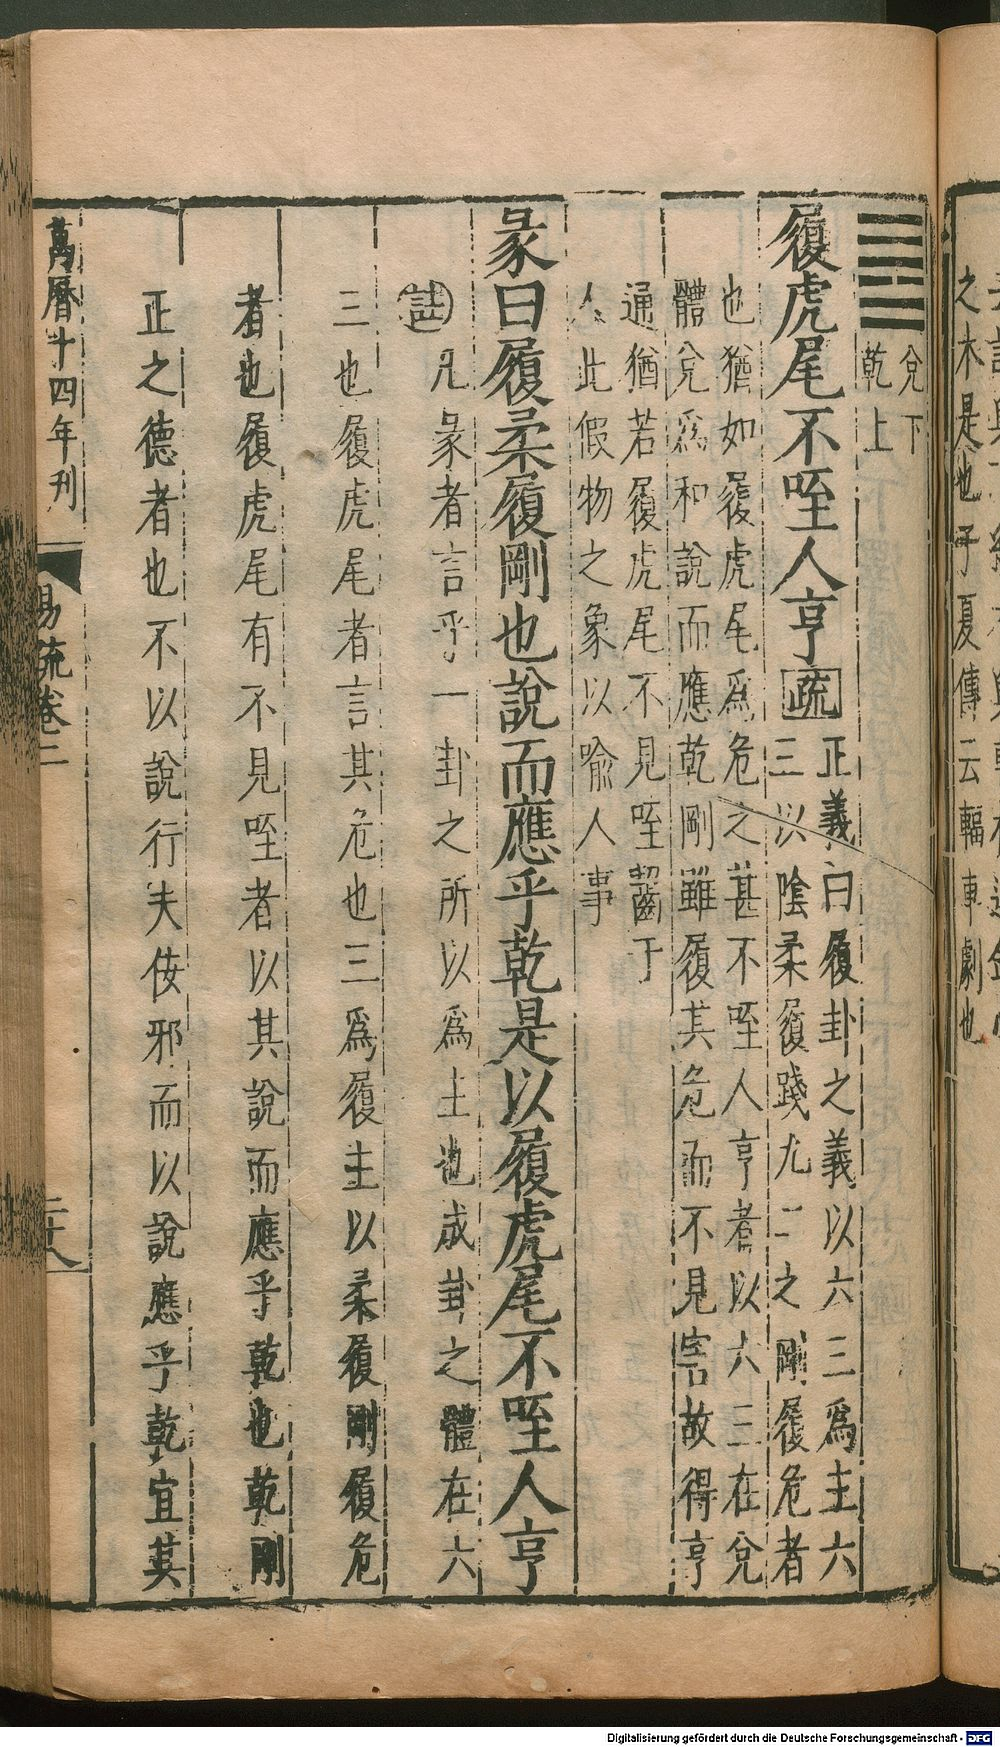 之木是也子夏傳云輻車劇也
兌下
乾上
履虎尾不咥人亨疏
正義曰履卦之義以六三爲主六
三以陰柔履踐九二之剛履危者
也猶如履虎尾爲危之甚不咥人亨者以六三在兌
體兌爲和說而應乾剛雖履其危而不見害故得亨
通猶若履虎尾不見咥齧于
人此假物之象以喻人事
彖曰履柔履剛也說而應乎乾是以履虎尾不咥人亨
註凡彖者言乎一卦之所以爲主也成卦之體在六
三也履虎尾者言其危也三爲履主以柔履剛履危
者也履虎尾有不見咥者以其說而應乎乾也乾剛
正之德者也不以說行夫佞邪而以說應乎乾宜其
萬曆十四年刊
易疏卷二
二十八
Digitalisierung gefördert durch die Deutsche Forschungsgemeinschaft - DFG